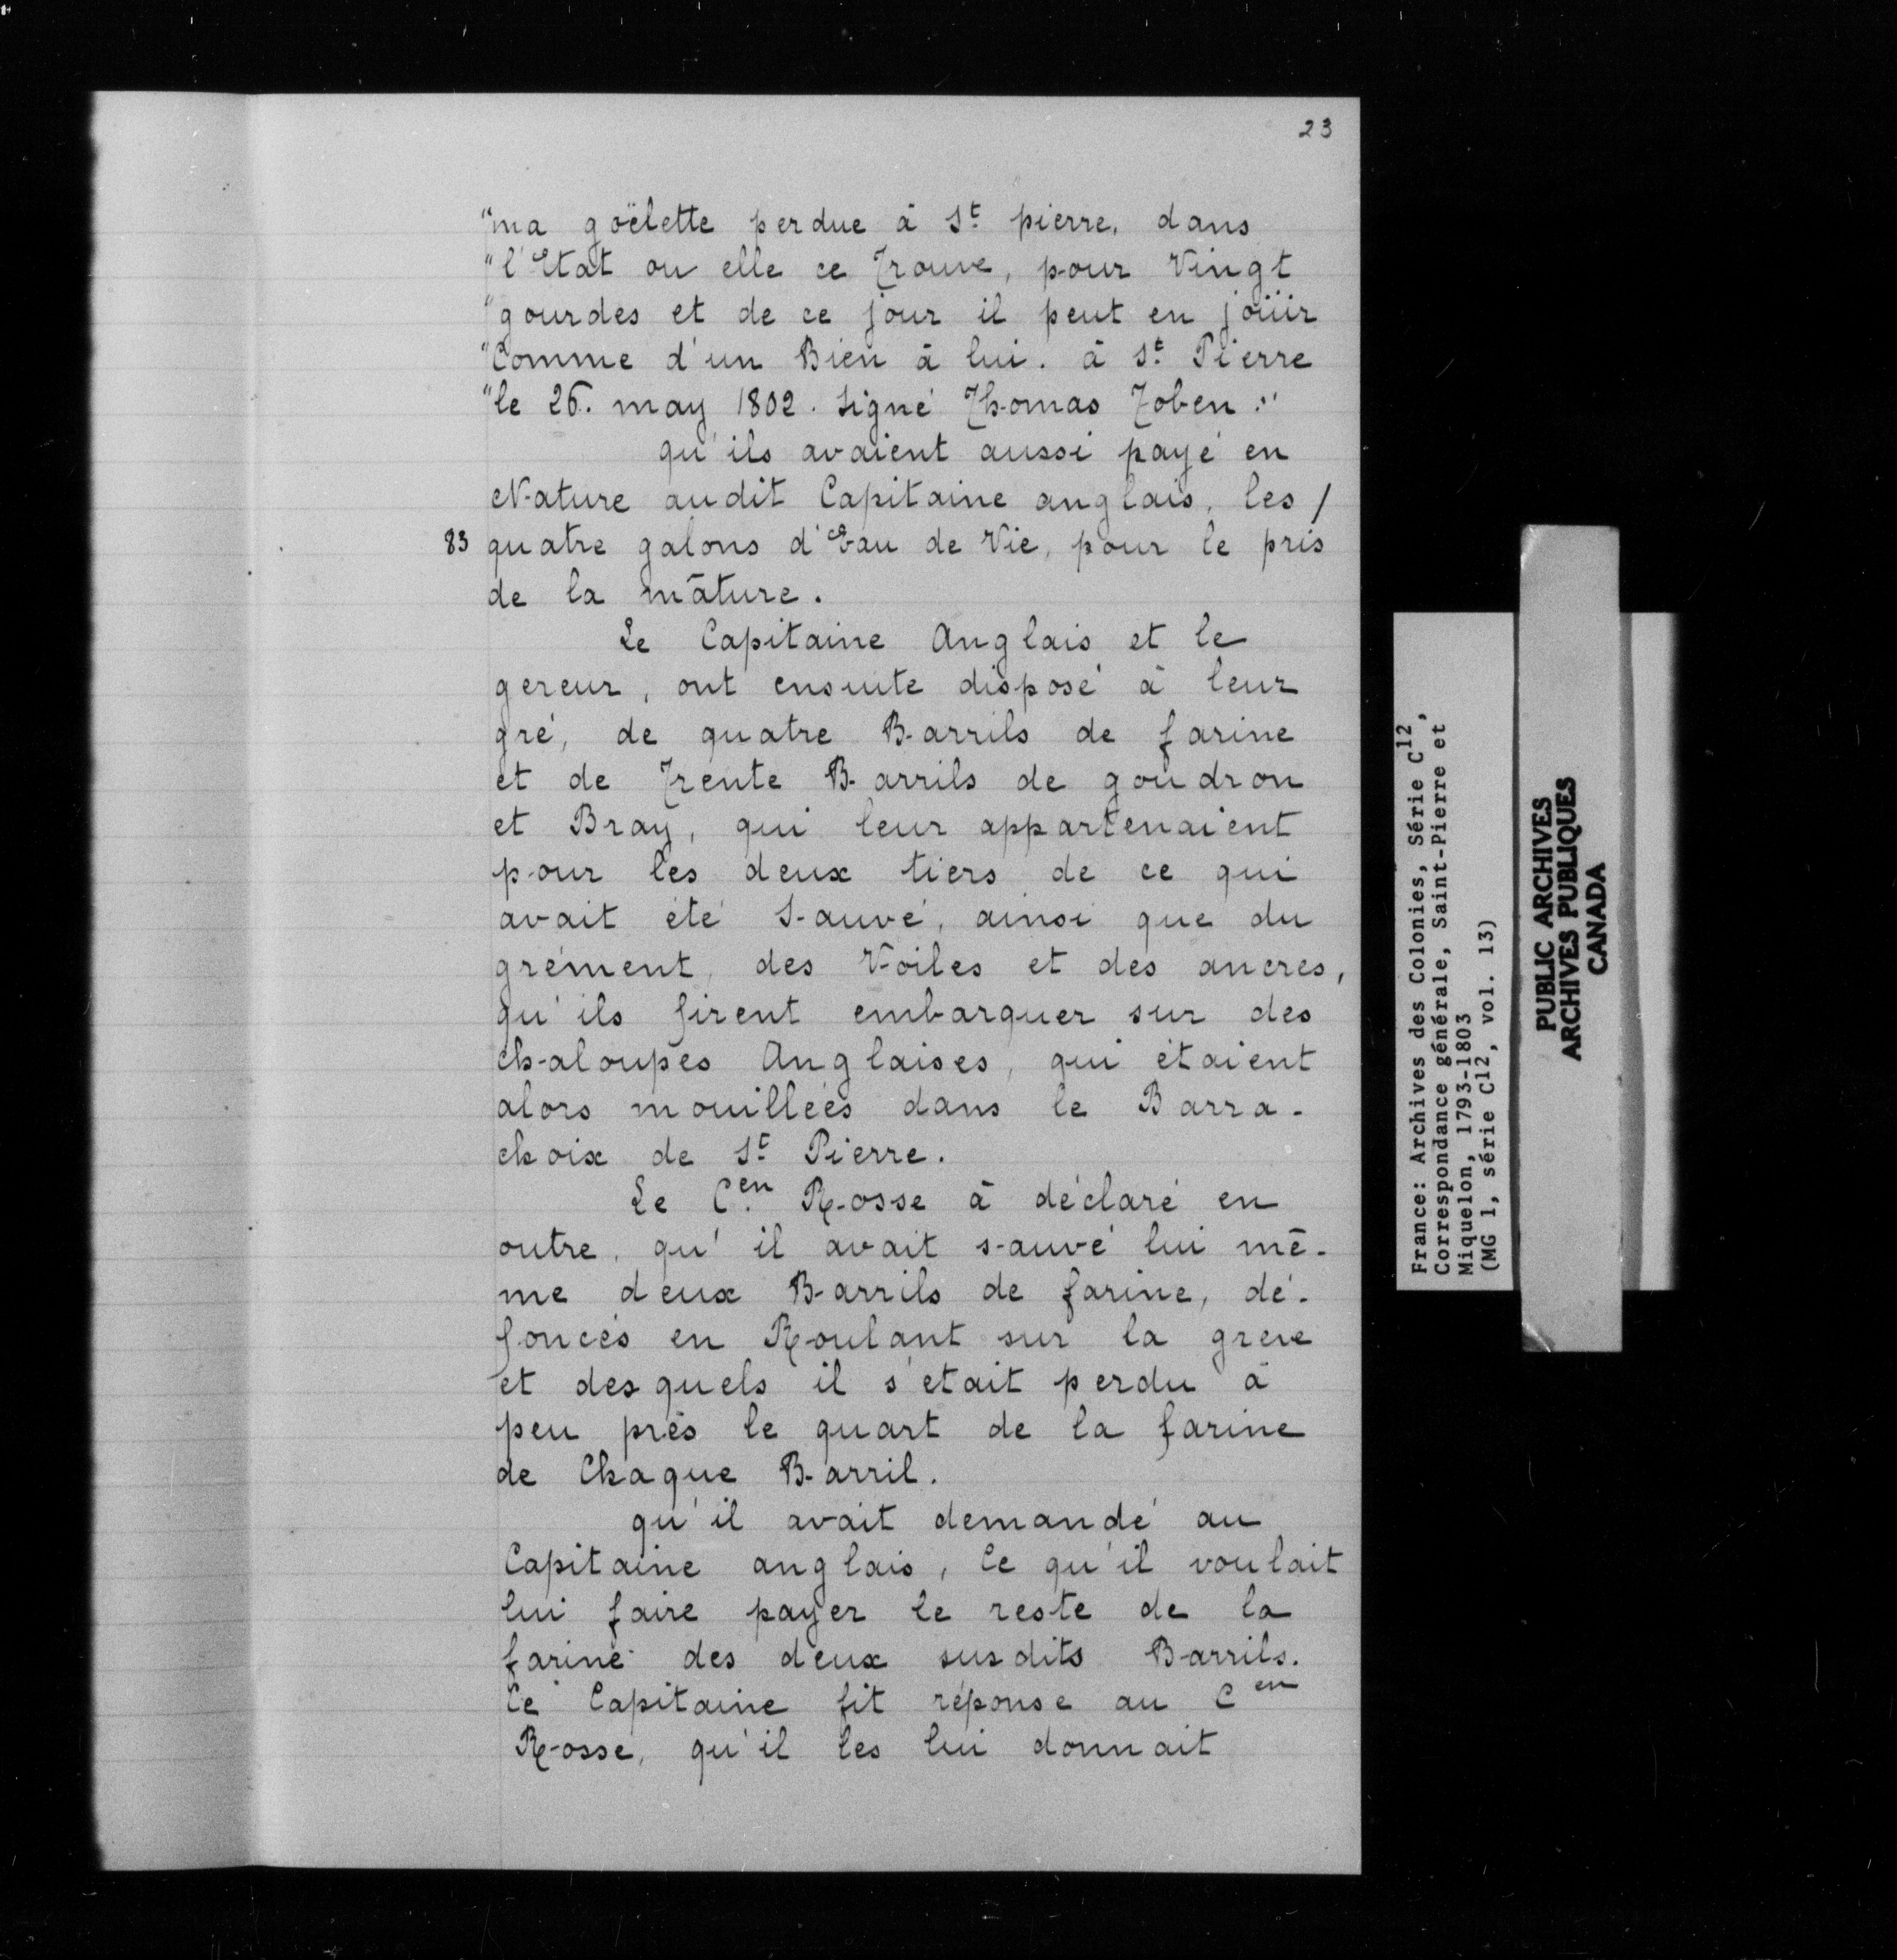 23
"ma goëlette perdue à St. pierre, dans
"l'Etat ou elle ce Trouve, pour Vingt
"gourdes et de ce jour il peut en joüir
"Comme d'un Bien à lui. à St. Pierre
"le 26. may 1802. signé Thomas Toben."
qu'ils avaient aussi payé en
Nature audit Capitaine anglais, les /
83 quatre galons d'Eau de Vie, pour le pris
de la mâture.
Le Capitaine Anglais et le
gereur, ont ensuite disposé à leur
gré, de quatre Barrils de farine
et de Trente Barrils de goudron
et Bray, qui leur appartenaient
pour les deux tiers de ce qui
avait été Sauvé, ainsi que du
grément, des Voiles et des ancres,
qu'ils firent embarquer sur des
chaloupes Anglaises, qui étaient
alors mouillées dans le Barra-
choix de St. Pierre.
Le Cen. Rosse à déclaré en
outre, qu'il avait sauvé lui mê-
me deux Barrils de farine, dé-
foncés en Roulant sur la greve
et desquels il s'etait perdu à
peu près le quart de la farine
de Chaque Barril.
qu'il avait demandé au
Capitaine anglais, Ce qu'il voulait
lui faire payer le reste de la
farine des deux susdits Barrils.
Ce Capitaine fit réponse au Cen
Rosse, qu'il les lui donnait
France: Archives des Colonies, Série C12,
Correspondance générale, Saint-Pierre et
Miquelon, 1793-1803
(MG 1, série C12, vol. 13)
PUBLIC ARCHIVES
ARCHIVES PUBLIQUES
CANADA